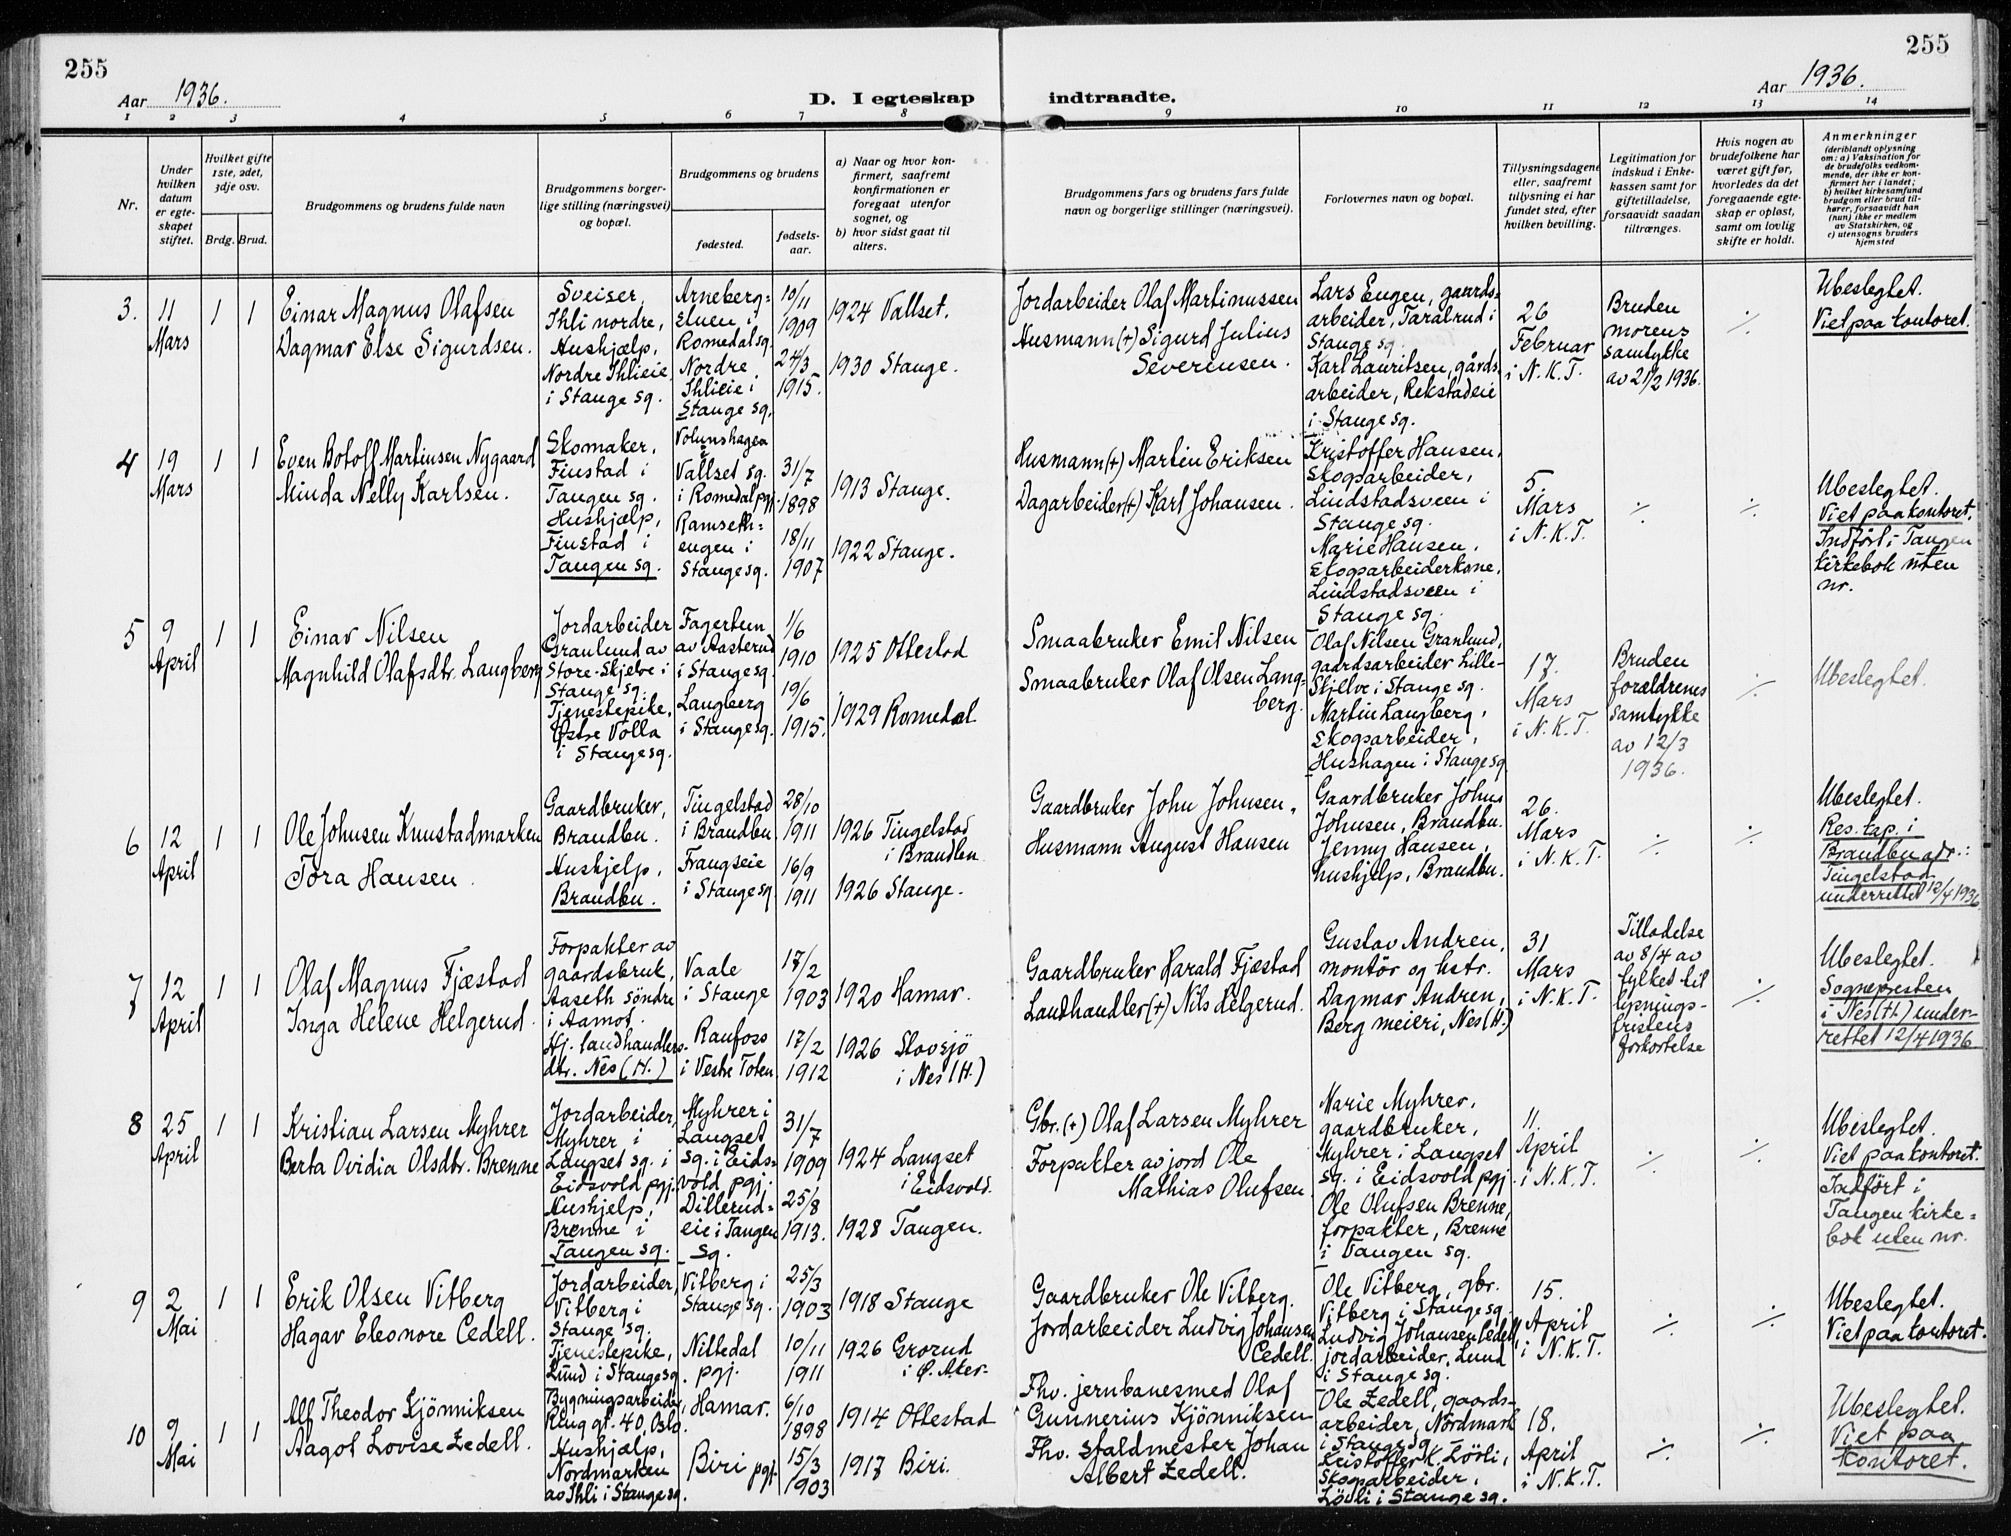 255
Aar 1936.
D. I egteskap
indtraadte.
Aar 1936.
255
1 2 3 4 5 6 7 8 9 10 11 12 13 14
Nr.
Under hvilken datum er egteskapet stiftet.
Hvilket gifte 1ste, 2det, 3dje osv.
Brdg. Brud.
Brudgommens og brudens fulde navn
Brudgommens borgerlige stilling (næringsvei) og bopæl.
Brudgommens og brudens
fødested.
fødselsaar.
a) Naar og hvor konfirmert, saafremt konfirmationen er foregaat utenfor sognet, og
b) hvor sidst gaat til alters.
Brudgommens fars og brudens fars fulde navn og borgerlige stillinger (næringsvei).
Forlovernes navn og bopæl.
Tillysningsdagene eller, saafremt tillysning ei har fundet sted, efter hvilken bevilling.
Legitimation for indskud i Enkekassen samt for giftetilladelse, forsaavidt saadan tiltrænges.
Hvis nogen av brudefolkene har været gift før, hvorledes da det foregaaende egteskap er opløst, samt om lovlig skifte er holdt.
Anmerkninger
(deriblandt oplysning om: a) Vaksination for de brudefolks vedkommende, der ikke er konfirmert her i landet; b) hvilket kirkesamfund brudgom eller brud tilhører, forsaavidt han (hun) ikke er medlem av Statskirken, og c) utensogns bruders hjemsted
3.
11 Mars
1 1
Einar Magnus Olafsen
Dagmar Else Sigurdsen.
Sveiser,
Ihli nordre,
Hushjælp,
Nordre Ihlieie
i Stange sg.
Arneberg=
eluen i
Romedal sg.
Nordre
Ihlieie i
Stange sg.
10/11
1909
24/3
1915.
1924 Vallset.
1930 Stange.
Jordarbeider Olaf Martinussen
Husmann (+) Sigurd Julius
Severinsen.
Lars Eugen, gaards=
arbeider, Taralrud i
Stange sg.
Karl Lauritsen, gårds
arbeider, Rekstadeie
i Stange sg.
26
Februar
i N.K.T.
Bruden
morens
samtykke
av 21/2 1936.
./.
Ubeslegtet.
Viet paa kontoret.
4
19 Mars
1 1
Even Botolf Martinsen Nygaard
Minda Nelly Karlsen.
Skomaker,
Finstad i
Tangen sg.
Hushjælp,
Finstad i
Tangen sg.
Volunshagen
i
Vallset sg.
i Romedal pgj.
Ramseth=
engen i
Stange sg.
31/7
1898
18/11
1907
1913 Stange.
1922 Stange.
Husmann (+) Martin Eriksen
Dagarbeider (+) Karl Johansen.
Kristoffer Hansen,
skogsarbeider,
Lindstadsveen i
Stange sg.
Marie Hansen,
skogsarbeiderkone,
Lindstadsveen i
Stange sg.
5.
Mars
i N.K.T.
./.
./.
Ubeslegtet.
Viet paa kontoret.
Indført i Tangen
kirkebok uten
nr.
5
9 April
1 1
Einar Nilsen
Magnhild Olafsdtr. Langberg
Jordarbeider
Granlund av
Store-Skjelve i
Stange sg.
Tjenestepike,
Østre Volla
i Stange sg.
Fagertun
av Aasterud
i Stange sg.
Langberg
i Stange sg.
1/6
1910
19/6
1915.
1925 Ottestad
1929 Romedal
Smaabruker Emil Nilsen
Smaabruker Olaf Olsen Lang=
berg.
Olaf Nilsen Granlund,
gaardsarbeider Lille-
Skjelve i Stange sg.
Martin Langberg,
skogsarbeider,
Hushagen i Stange sg
17.
Mars
i N.K.T.
Bruden
forældrenes
samtykke
av 12/3
1936.
./.
Ubeslegtet.
6
12 April
1 1
Ole Johnsen Knustadmarken
Tora Hansen.
Gaardbruker,
Brandbu.
Hushjelp,
Brandbu.
Tingelstad
i Brandbu
Frangseie
i Stange sg.
28/10
1911
16/9
1911
1926 Tingelstad
i Brandbu
1926 Stange.
Gaardbruker John Johnsen,
Husmann August Hansen
Gaardbruker Johns
Johnsen, Brandbu.
Jenny Hansen,
hushjelp, Brandbu.
26.
Mars
i N.K.T.
./.
./.
Ubeslegtet.
Res. kap. i
Brandbu adr.:
Tingelstad
underrettet 12/4 1936
7
12 April
1 1
Olaf Magnus Fjæstad
Inga Helene Helgerud.
Forpakter av
gaardsbruk,
Aaseth söndre
i Aamot.
Hj. landhandlers-
dtr. Nes (H.)
Vaale
i Stange
Raufoss
i Vestre Toten
17/2
1903
17/2
1912
1920 Hamar.
1926 Stavsjö
i Nes (H.)
Gaardbruker Harald Fjæstad
Landhandler (+) Nils Helgerud.
Gustav Andren,
montör og hstr.
Dagmar Andren,
Berg meieri, Nes (H.)
31
Mars
i N.K.T.
Tilladelse
av 8/4 av
fylket til
lysnings-
fristens
forkortelse
./.
Ubeslegtet.
Sognepresten
i Nes (H.) under-
rettet 12/4 1936
8
25 April
1 1
Kristian Larsen Myhrer
Berta Ovidia Olsdtr. Brenne
Jordarbeider,
Myhrer i
Langset sg. i
Eidsvold pgj.
Hushjelp,
Brenne i
Tangen sg.
Myhrer i
Langset
sg. i Eids-
vold pgj.
Dillerud-
eie i Tangen
sg.
31/7
1909
25/8
1913.
1924 Langset
i Eidsvold.
1928 Tangen.
Gbr. (+) Olaf Larsen Myhrer
Forpakter av jord Ole
Mathias Olufsen
Marie Myhrer,
gaardbruker,
Myhrer i Langset
sg. i Eidsvold pgj.
Ole Olufsen Brenne,
forpakter, Brenne
i Tangen sg.
11.
April
i N.K.T.
./.
./.
Ubeslegtet.
Viet paa kontoret.
Indført i
Tangen kirke=
bok uten nr.
9
2 Mai
1 1
Erik Olsen Vitberg
Hagar Eleonore Cedell.
Jordarbeider,
Vitberg i
Stange sg.
Tjenestepike,
Lund i Stange sg.
Vitberg i
Stange sg.
Nittedal
pgj.
25/3
1903
10/11
1911
1918 Stange
1926 Grorud
i Ø. Aker.
Gaardbruker Ole Vitberg.
Jordarbeider Ludvig Johansen
Cedell.
Ole Vitberg, gbr.
Vitberg i Stange sg.
Ludvig Johansen Cedell,
jordarbeider, Lund
i Stange sg.
15.
April
i N.K.T.
./.
./.
Ubeslegtet.
Viet paa kontoret.
10
9 Mai
1 1
Alf Theodor Kjönniksen
Aagot Lovise Zedell.
Bygningsarbeider,
Ring gt. 40, Oslo.
Hushjælp,
Nordmarken
av Ihli i Stange sg.
Hamar.
Biri pgj.
6/10
1898
15/3
1903
1914 Ottestad
1917 Biri.
Fhv. jernbanesmed Olaf
Gunnerius Kjönniksen
Fhv. staldmester Johan
Albert Zedell.
Ole Zedell, gaards-
arbeider, Nordmark
i Stange sg.
Kristoffer K. Lövli,
Skogarbeider,
Lövli i Stange sg.
18.
April
i N.K.T.
./.
./.
Ubeslegtet.
Viet paa
kontoret.